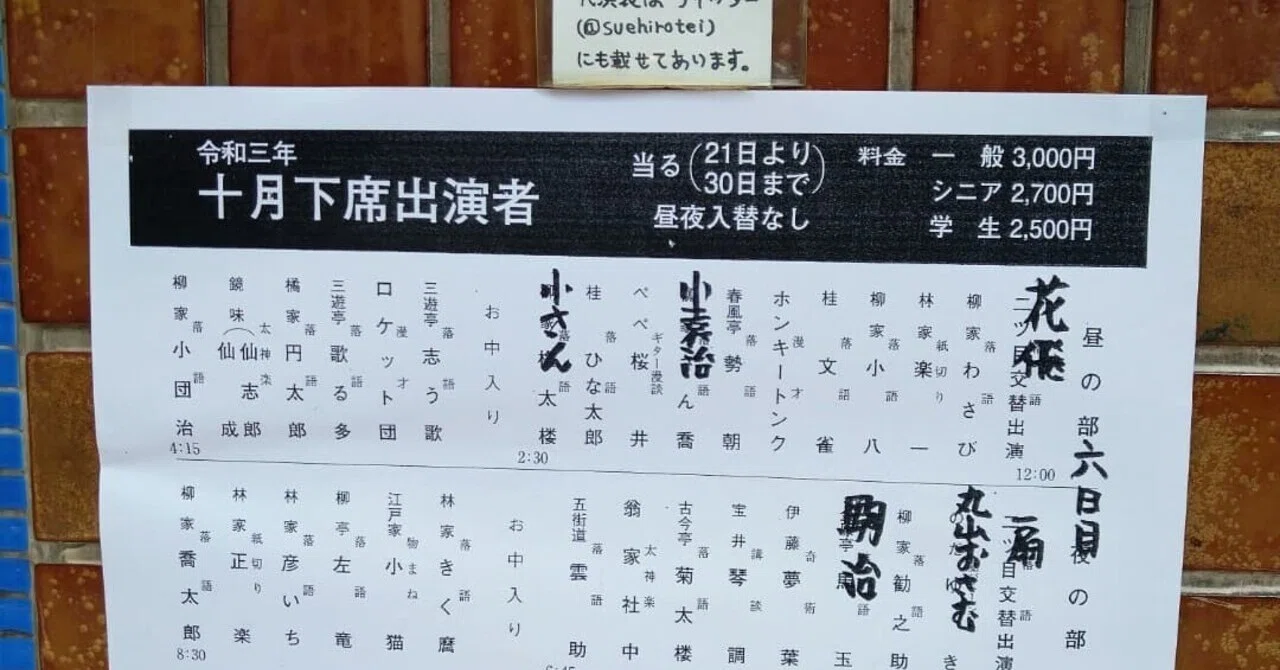 (@suehirotei)
にも載せてあります。
令和三年
十月下席出演者
当る(21日より
30日まで)
昼夜入替なし
料金 一般 3,000円
シニア 2,700円
学生 2,500円
昼の部
六日目
花
二ツ目交替出演 落語
12:00
柳家わさび 落語
林家楽一 紙切り
柳家小八 落語
桂文雀 落語
ホンキートンク 漫才
春風亭勢朝 落語
小満治
ん喬 語
ペペ桜井 ギター漫談
桂ひな太郎 落語
小さん
太楼 語
2:30
お中入り
三遊亭志う歌 落語
ロケット団 漫才
三遊亭歌る多 落語
橘家円太郎 落語
鏡味仙志郎 仙成 太神楽
柳家小団治 落語
4:15
夜の部
一扇
二ツ目交替出演 落語
丸山おさむ
柳家勧之助 落語
馬治
玉 語
伊藤夢葉 奇術
宝井琴調 講談
古今亭菊太楼 落語
翁家社中 太神楽
五街道雲助 落語
お中入り
林家きく麿 落語
江戸家小猫 物まね
柳亭左竜 落語
林家彦いち 落語
林家正楽 紙切り
柳家喬太郎 落語
8:30